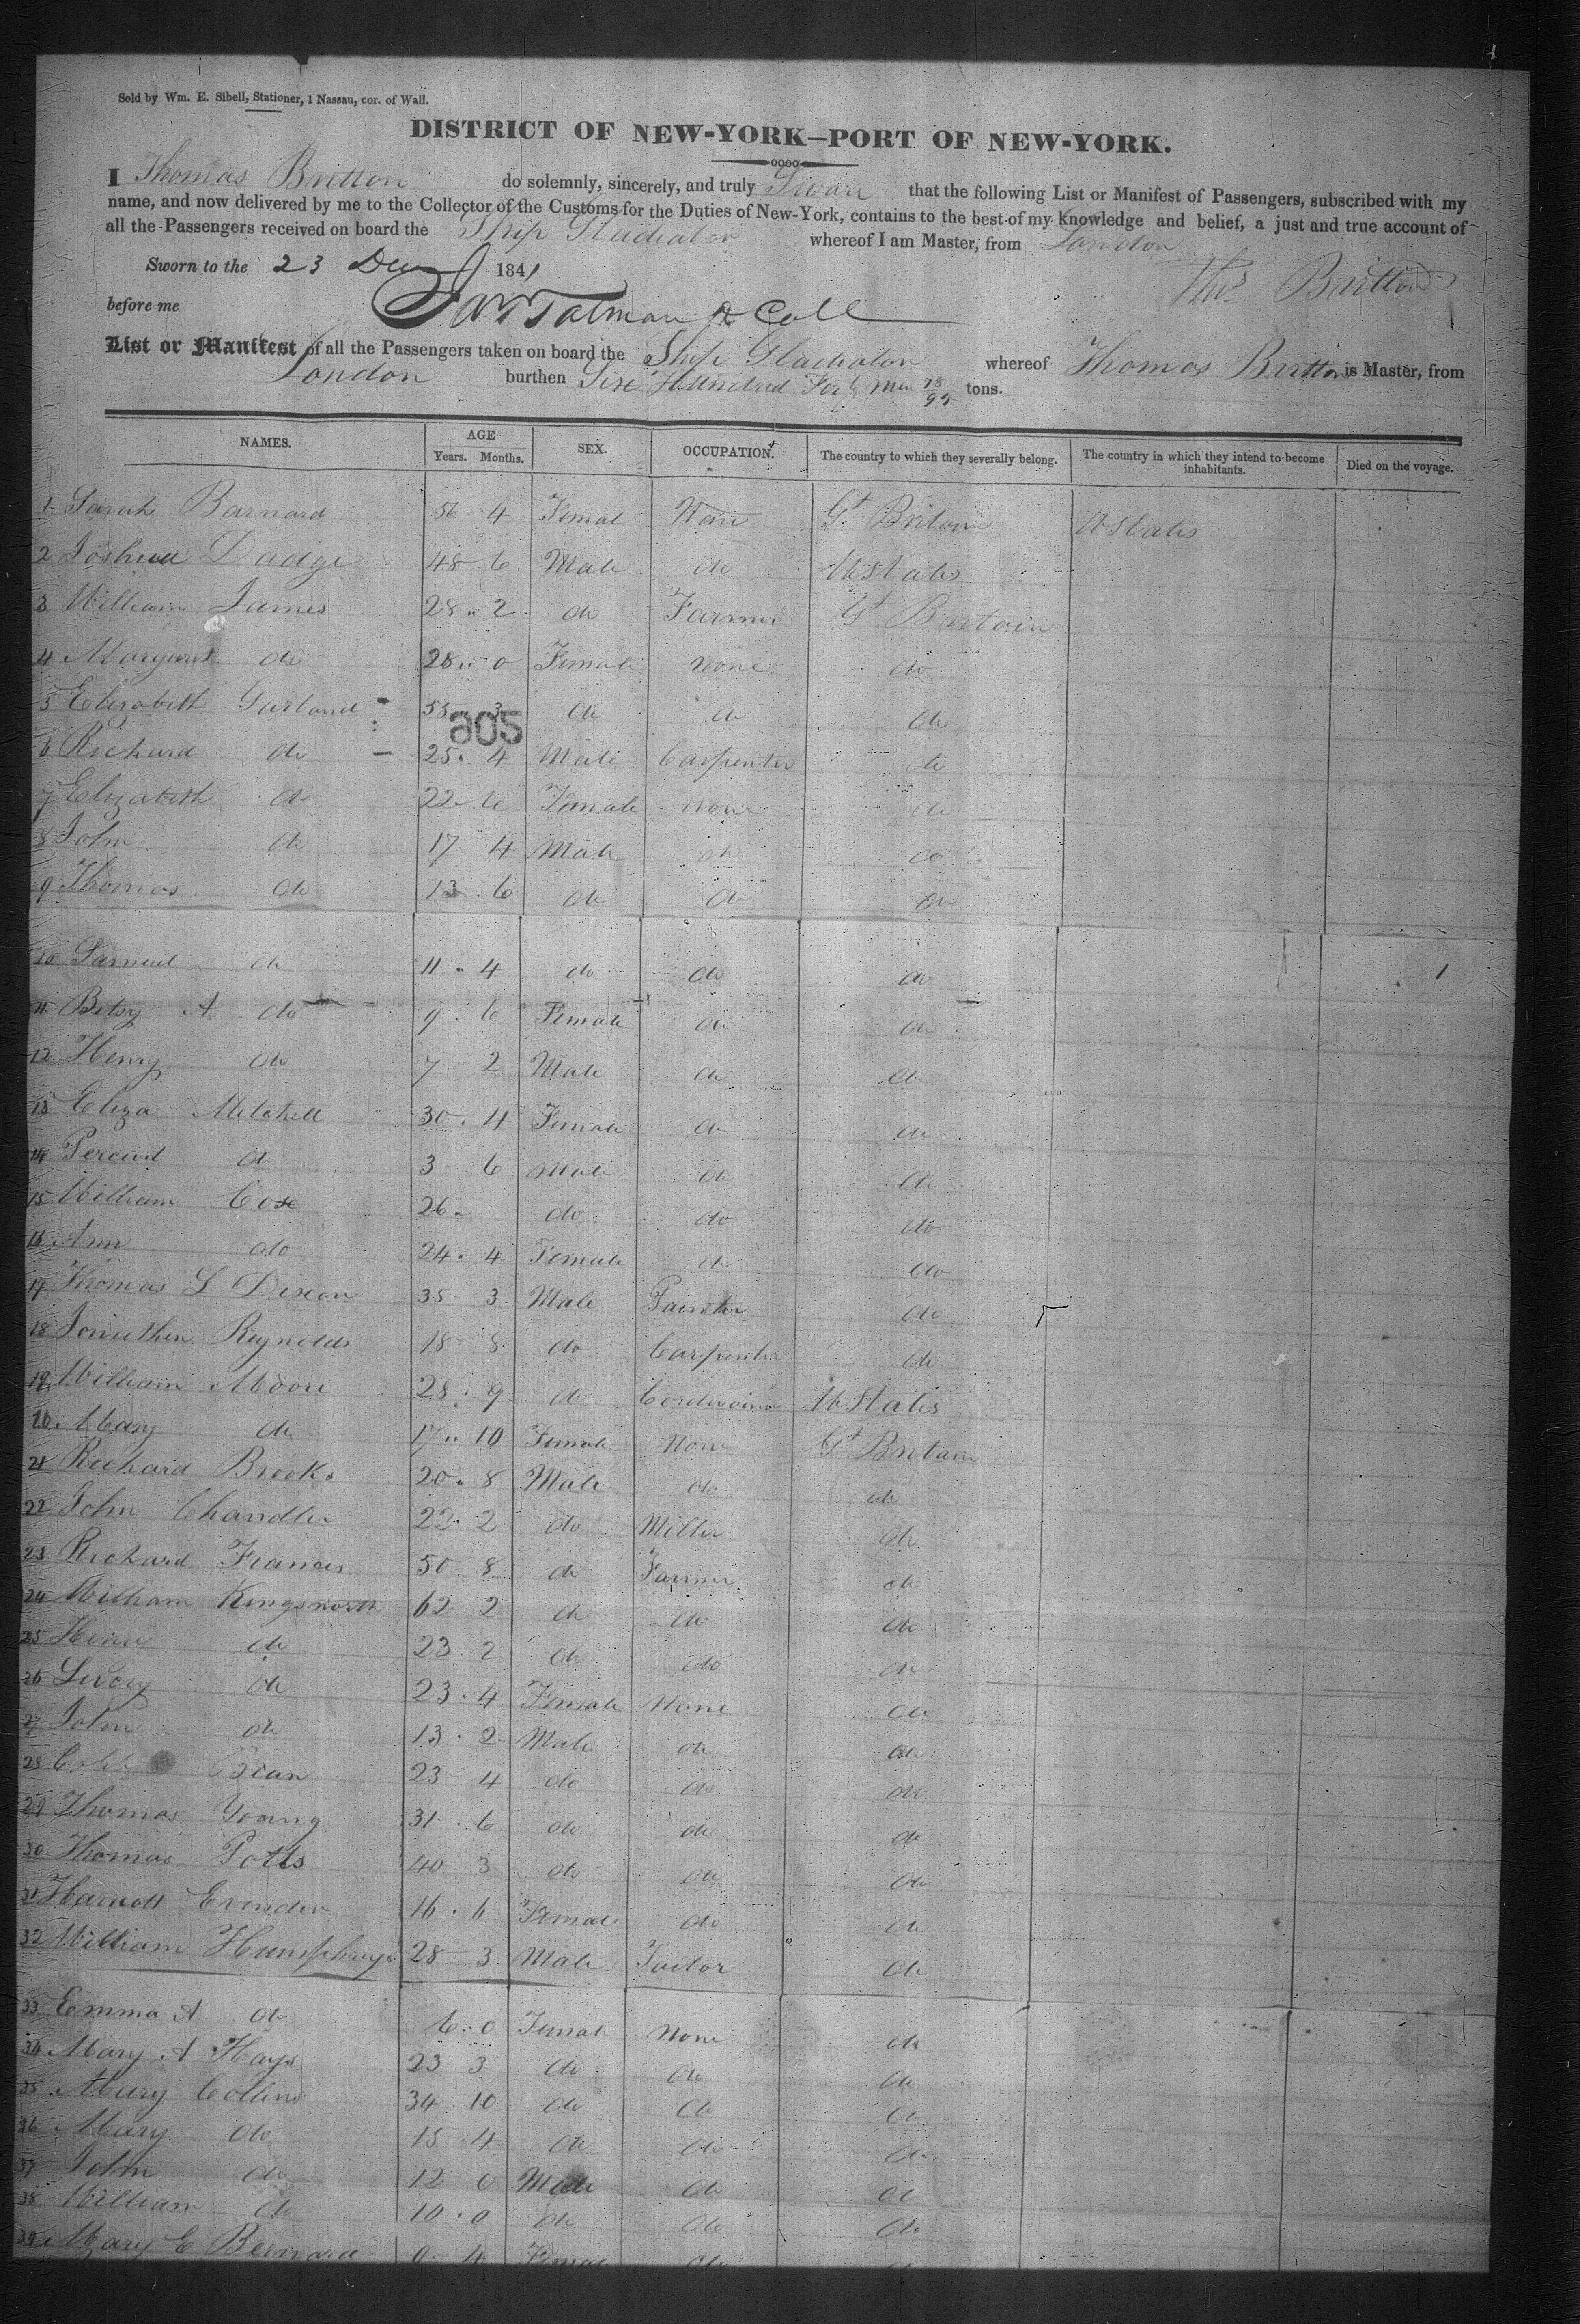 Sold by Wm. E. Sibell, Stationer, 1 Nassau, cor. of Wall.
DISTRICT OF NEW-YORK—PORT OF NEW-YORK.
I Thomas Britton do solemnly, sincerely, and truly Swear that the following List or Manifest of Passengers, subscribed with my
name, and now delivered by me to the Collector of the Customs for the Duties of New-York, contains to the best of my knowledge and belief, a just and true account of
all the Passengers received on board the Ship Gladiator whereof I am Master, from London
Sworn to the 23 Decr 1841 Thos Britton
before me Talman D Coll
List or Manifest of all the Passengers taken on board the Ship Gladiator whereof Thomas Britton is Master, from
London burthen Six Hundred Forty 28/95 tons.
NAMES. AGE Years. Months. SEX. OCCUPATION. The country to which they severally belong. The country in which they intend to become inhabitants. Died on the voyage.
1 Sarah Barnard 56 4 Femal None Gt Briton U States
2 Joshua Dadge 48 6 Male do U States
3 William James 28 2 do Farmer Gt Bartain
4 Margaret do 28 0 Female None do
5 Elizabeth Garland 53 3 do do do
905
6 Richard do 25 4 Male Carpenter do
7 Elizabeth do 22 6 Female None do
8 John do 17 4 Male do do
9 Thomas do 13 6 do do do
10 Samuel do 11 4 do do do 1
11 Betsy A do 9 6 Female do do
12 Henry do 7 2 Male do do
13 Eliza Mitchell 30 4 Female do do
14 Percival do 3 6 Male do do
15 William Cox 26 do do do
16 Ann do 24 4 Female do do
17 Thomas L Dixon 35 3 Male Painter do
18 Jonathen Reynolds 18 8 do Carpenter do
19 William Moore 28 9 do Cordwainer U States
20 Mary do 17 10 Female None Gt Britain
21 Richard Brooks 20 8 Male do do
22 John Chandler 22 2 do Miller do
23 Richard Francis 50 8 do Farmer do
24 William Kingsnorth 62 2 do do do
25 Henry do 23 2 do do do
26 Lucy do 23 4 Female None do
27 John do 13 2 Male do do
28 Bran 23 4 do do do
29 Thomas Young 31 6 do do do
30 Thomas Potts 40 3 do do do
31 Harriott 16 6 Female do do
32 William Humphreys 28 3 Male Tailor do
33 Emma A do 6 0 Female None do
34 Mary A Hays 23 3 do do do
35 Mary Collins 34 10 do do do
36 Mary do 15 4 do do do
37 John do 12 0 Male do do
38 William do 10 0 do do do
39 Mary E Bernard 0 4 Female do